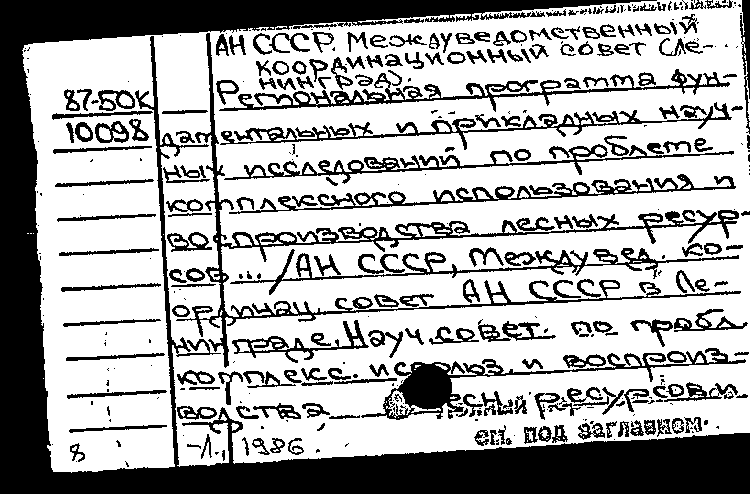 АН СССР. Междуведомственный
координационный совет (Ле-
нинград).
87-БОК
10098
Региональная программа фун-
даментальных и прикладных науч-
ных исследований по проблеме
комплексного использования и
воспроизводства лесных ресур-
сов... /АН СССР, Междувед. ко-
ординац. совет АН СССР в Ле-
нинграде, Науч. совет. по пробл
комплекс. использ. и воспроиз-
водства лесн. ресурсов и
полный
см. под заглавном.
8
-Л., 1986.